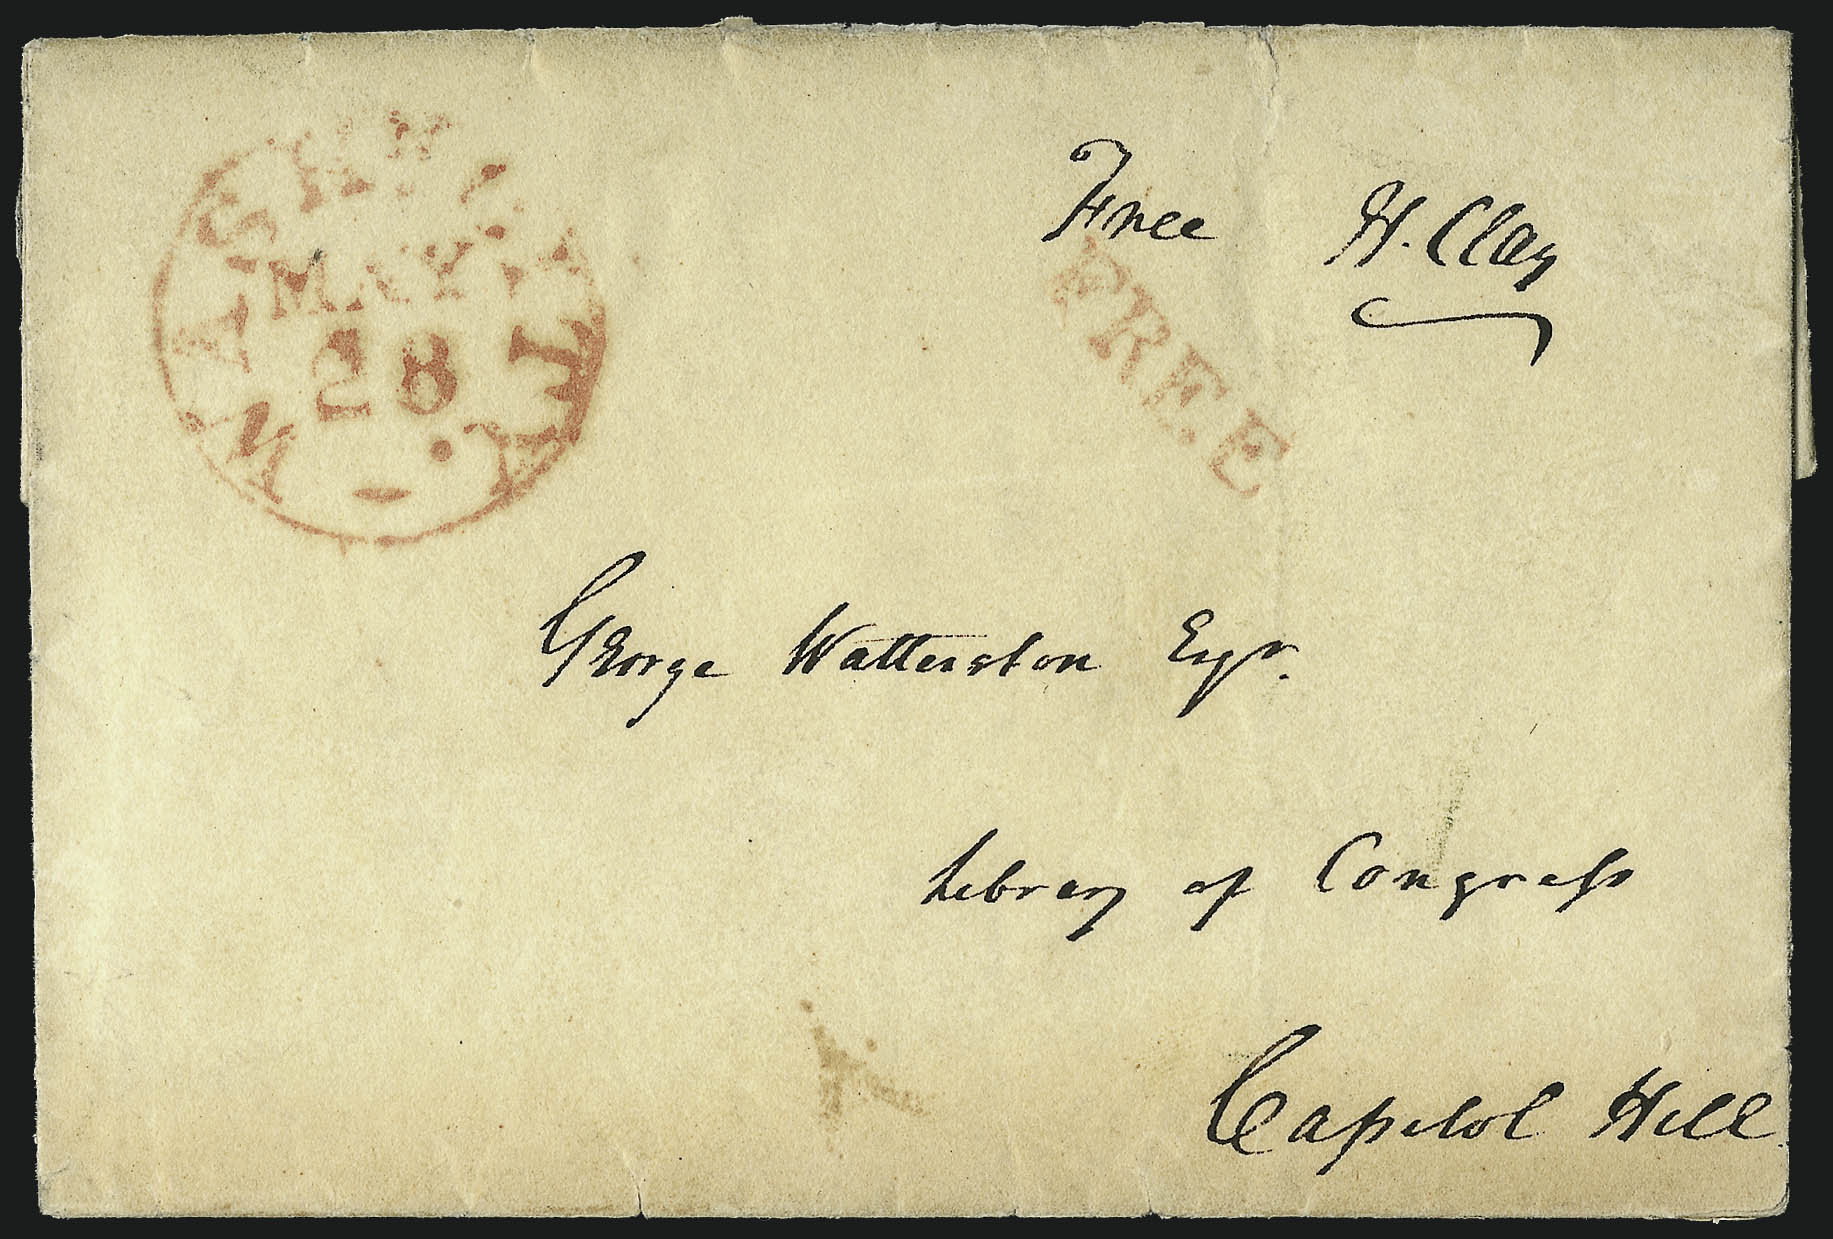 WASHN CITY
MAY
28
Free H. Clay
FREE
George Watterston Esqr.
Library of Congress
Capitol Hill